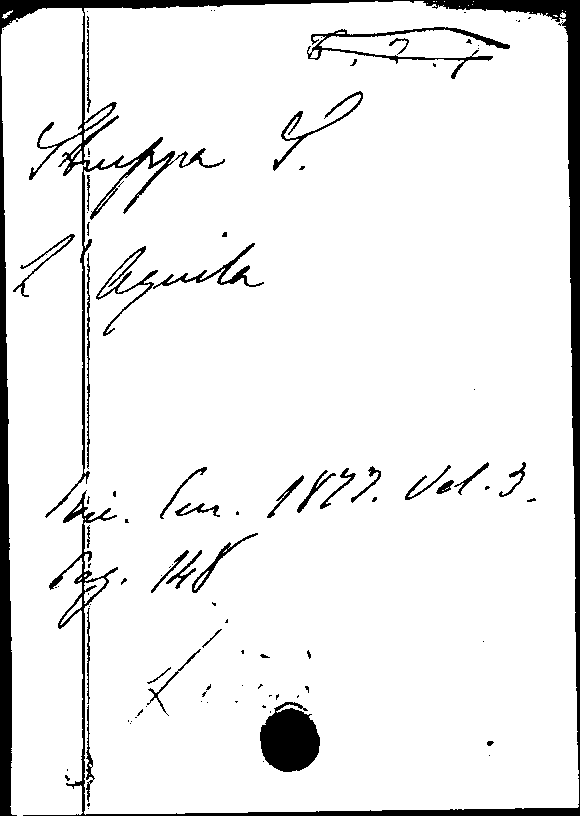 6.7.4
Struppa S.
L'Aquila
Sic. 1877. Vol. 3.
Pag. 148